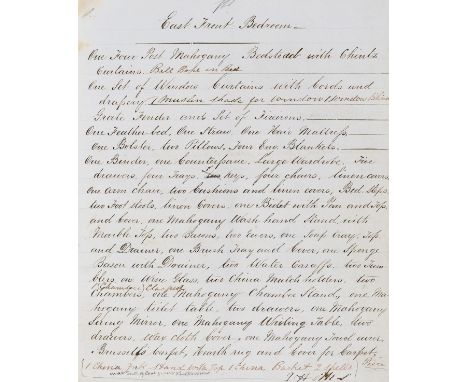 East Front Bedroom
One Four Post Mahogany Bedstead with Chintz
Curtains. Bell Rope in Bed
One Set of Window Curtains with Cords and
drapery 1 Muslin shade for window 1 Window Blind
Grate Fender and Set of Fireirons.
One Feather bed, One Straw, One Hair Mattress,
One Bolster, two Pillows, Four Eng. Blankets.
One Binder, one Counterpane, Large Wardrobe, Five
drawers, four Trays, keys, four chairs, linen covers,
one arm chair, two Cushions and linen covers, Bed steps
two Foot stools, linen Covers, one Bidet with Pan and Top,
and Cover, one Mahogany Wash hand Stand, with
Marble Top, two Basins, two ewers, one Soap Tray, Top
and Drainer, one Brush Tray and Cover, one Sponge
Bason with Drainer, two Water Caraffs, two Tum
blers, one Wine Glass, two China Match holders, two
Chambers, one Mahogany Chamber Stand, one Ma
hogany toilet table, two drawers, one Mahogany
Swing Mirror, one Mahogany Writing Table, two
drawers, wax cloth Cover, one Mahogany
Brussells Carpet, Hearth rug and Cover for Carpet,
1 China Ink Stand with Top 1 China Basket 2